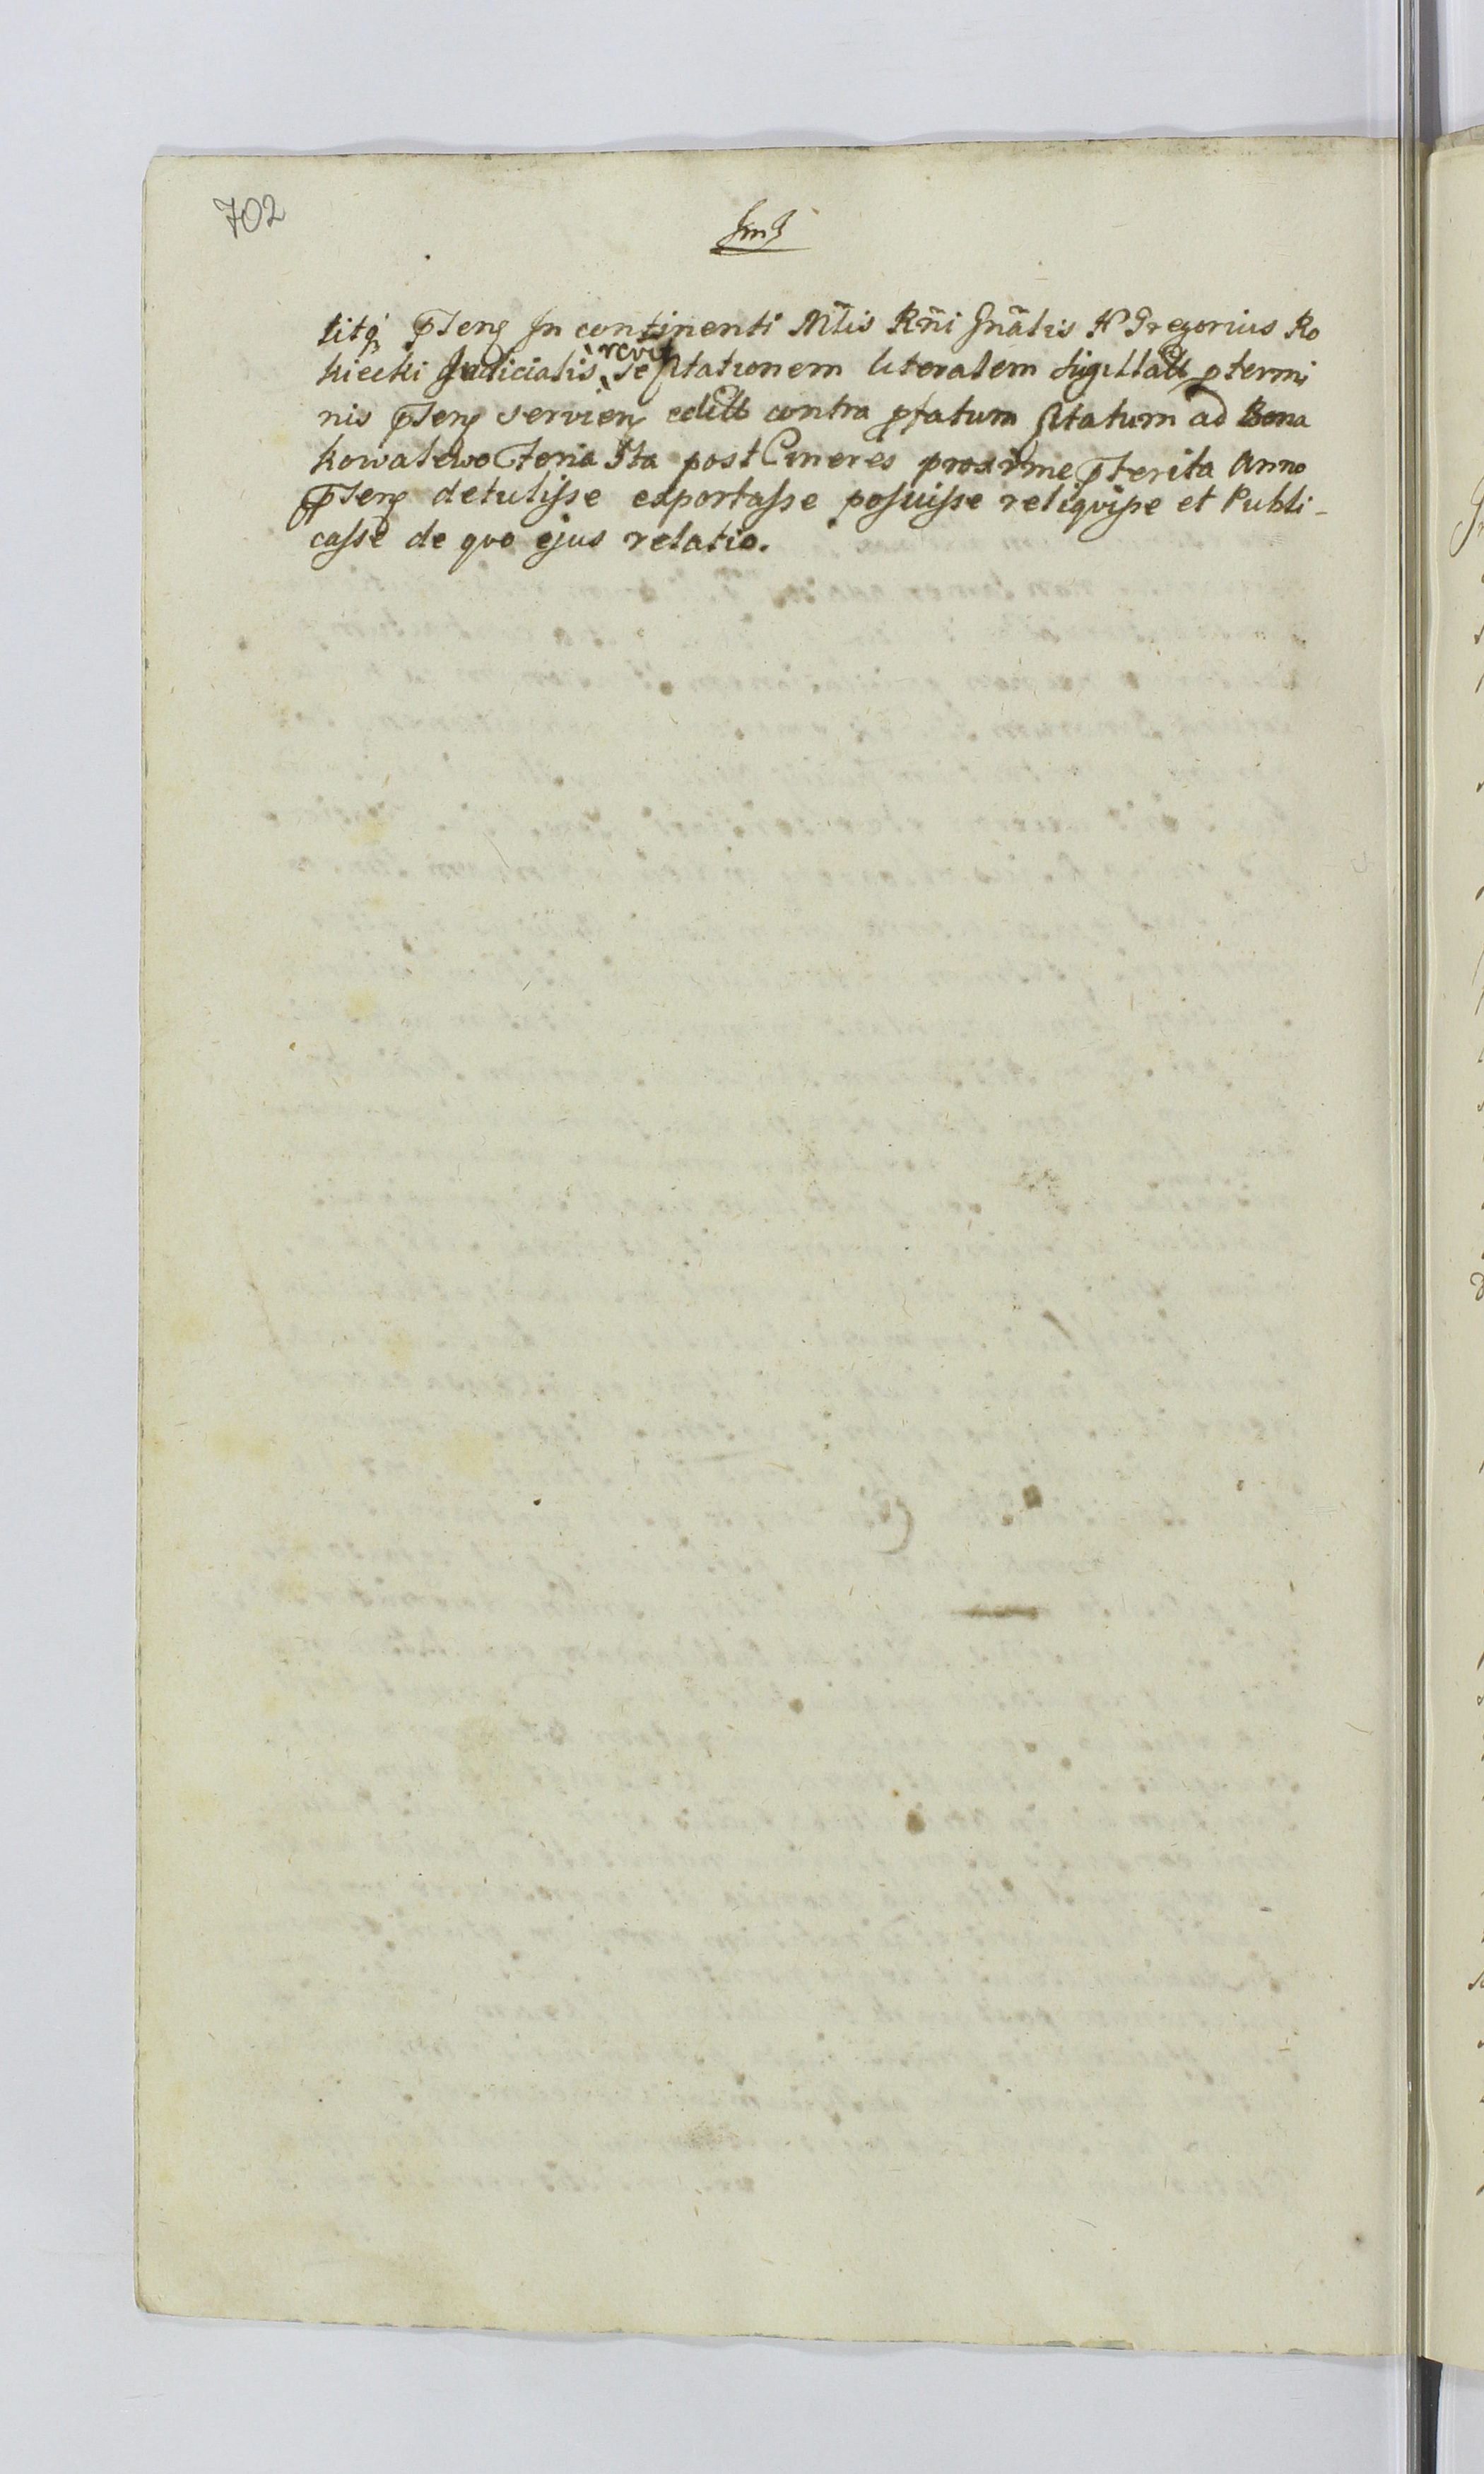 702
titq; pntens In continenti Mtis Rñi Gnãlis H Gregorius Ro
kiecki Judicialis recvit se citationem literalem sigillatt p termi
nis pntens servien editt contra pfatum citatum ad Bona
Kowalewo Feria 5ta post Cineres proxime pterita Anno
pntens detulisse exportasse posuisse reliquisse et Publi-
casse de quo ejus relatio.